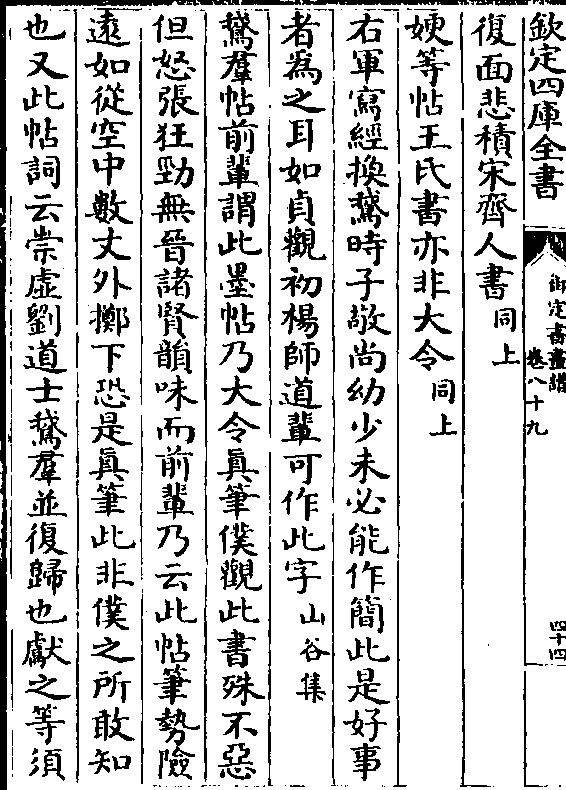 欽定四庫全書
御定書畫譜
卷八十九
四十四
復面悲積宋齊人書同上
㛐等帖王氏書亦非大令同上
右軍寫經換鵞時子敬尚幼少未必能作簡此是好事
者為之耳如貞觀初楊師道輩可作此字山谷集
鵞羣帖前輩謂此墨帖乃大令眞筆僕觀此書殊不惡
但怒張狂勁無晉諸賢韻味而前輩乃云此帖筆勢險
遠如從空中數丈外擲下恐是眞筆此非僕之所敢知
也又此帖詞云崇虚劉道士鵞羣並復歸也獻之等須